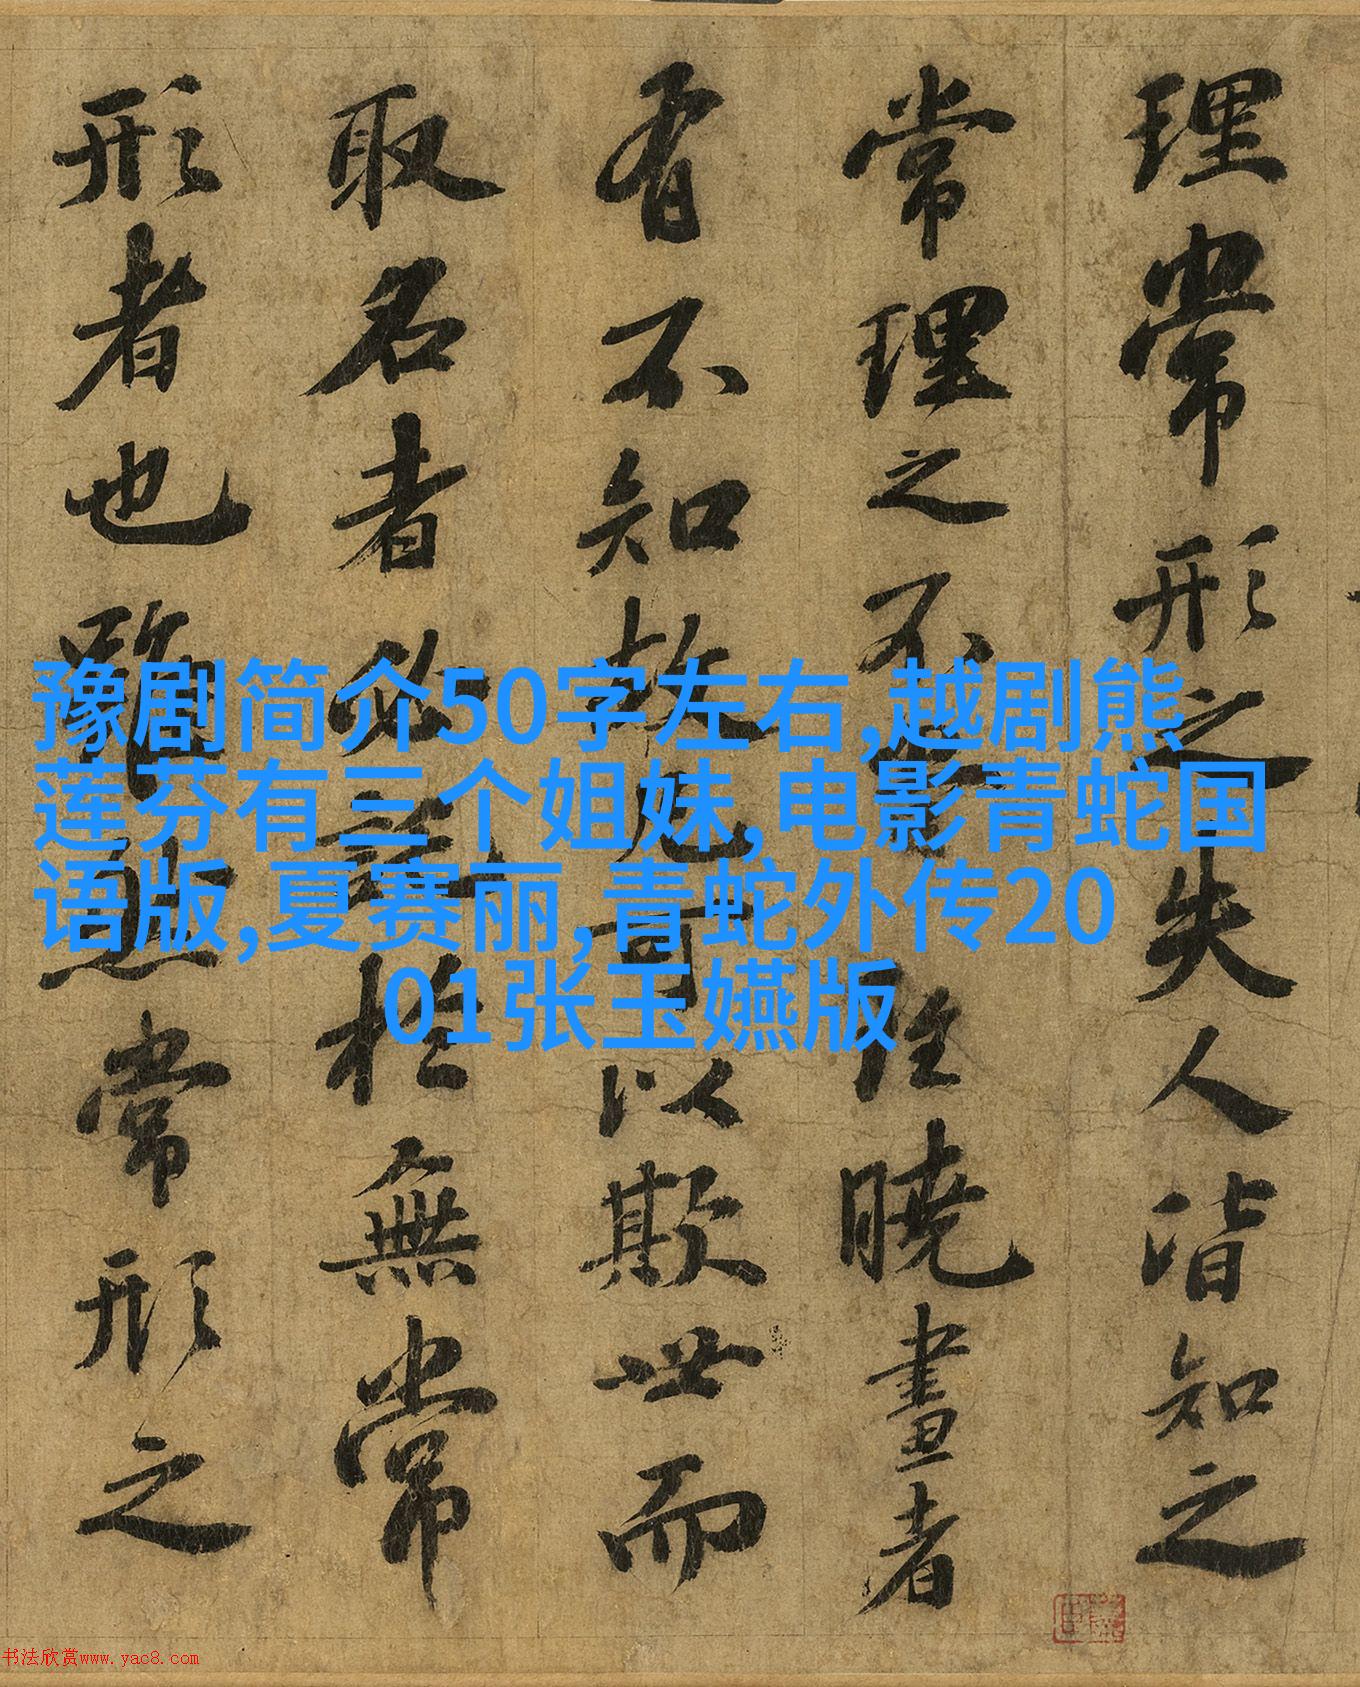 理常形之失人皆知之
常理之不雖曉畫者
有不知故凡可以欺世而
取名者必託於無常
形者也雖然常形之
豫剧简介50字左右,越剧熊
莲芬有三个姐妹,电影青蛇国
语版,夏赛丽,青蛇外传20
01张玉嬿版
书法欣赏www.yac8.com